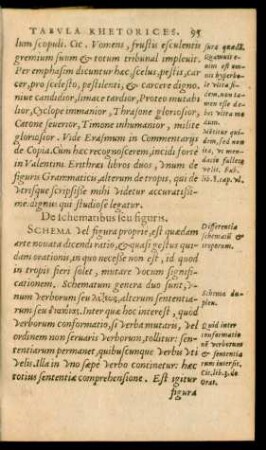 TABVLA RHETORICES. 95
lum scopuli. Cic. Vomens, frustis esculentis
gremium suum & totum tribunal impleuit.
Per emphasim dicuntur hæc, scelus, pestis, carcer,
pro scelesto, pestilenti, & carcere digno,
niue candidior, limace tardior, Proteo mutabilior,
Cyclope immanior, Thrasone gloriosior,
Catone seuerior, Timone inhumanior, milite
gloriosior. Vide Erasmum in Commentarijs
de Copia. Cum hæc recognoscerem, incidi forte
in Valentini Erithræi libros duos, vnum de
figuris Grammaticis, alterum de tropis, qui de
vtrisque scripsisse mihi videtur accuratissime:
dignus qui studiose legatur.
De schematibus seu figuris.
SCHEMA vel figura proprie, est quædam
arte nouata dicendi ratio, & quasi gestus quidam
orationis, in quo necesse non est, id quod
in tropis fieri solet, mutare vocum significationem.
Schematum genera duo sunt, vnum
verborum seu λέξεως, alterum sententiarum
seu διανοίας. Inter quæ hoc interest, quod
verborum conformatio, si verba mutaris, vel
ordinem non seruaris verborum, tollitur: sententiarum
permanet, quibuscunque verbis vti
velis. Illa in vno sæpe verbo continetur: hæc
totius sententiæ comprehensione. Est igitur
figura
Differentia
schematũ &
troporum.
Schema duplex.
Quid inter
conformationẽ
verborum
& sententiarum
intersit.
Cic. lib. 3. de
Orat.